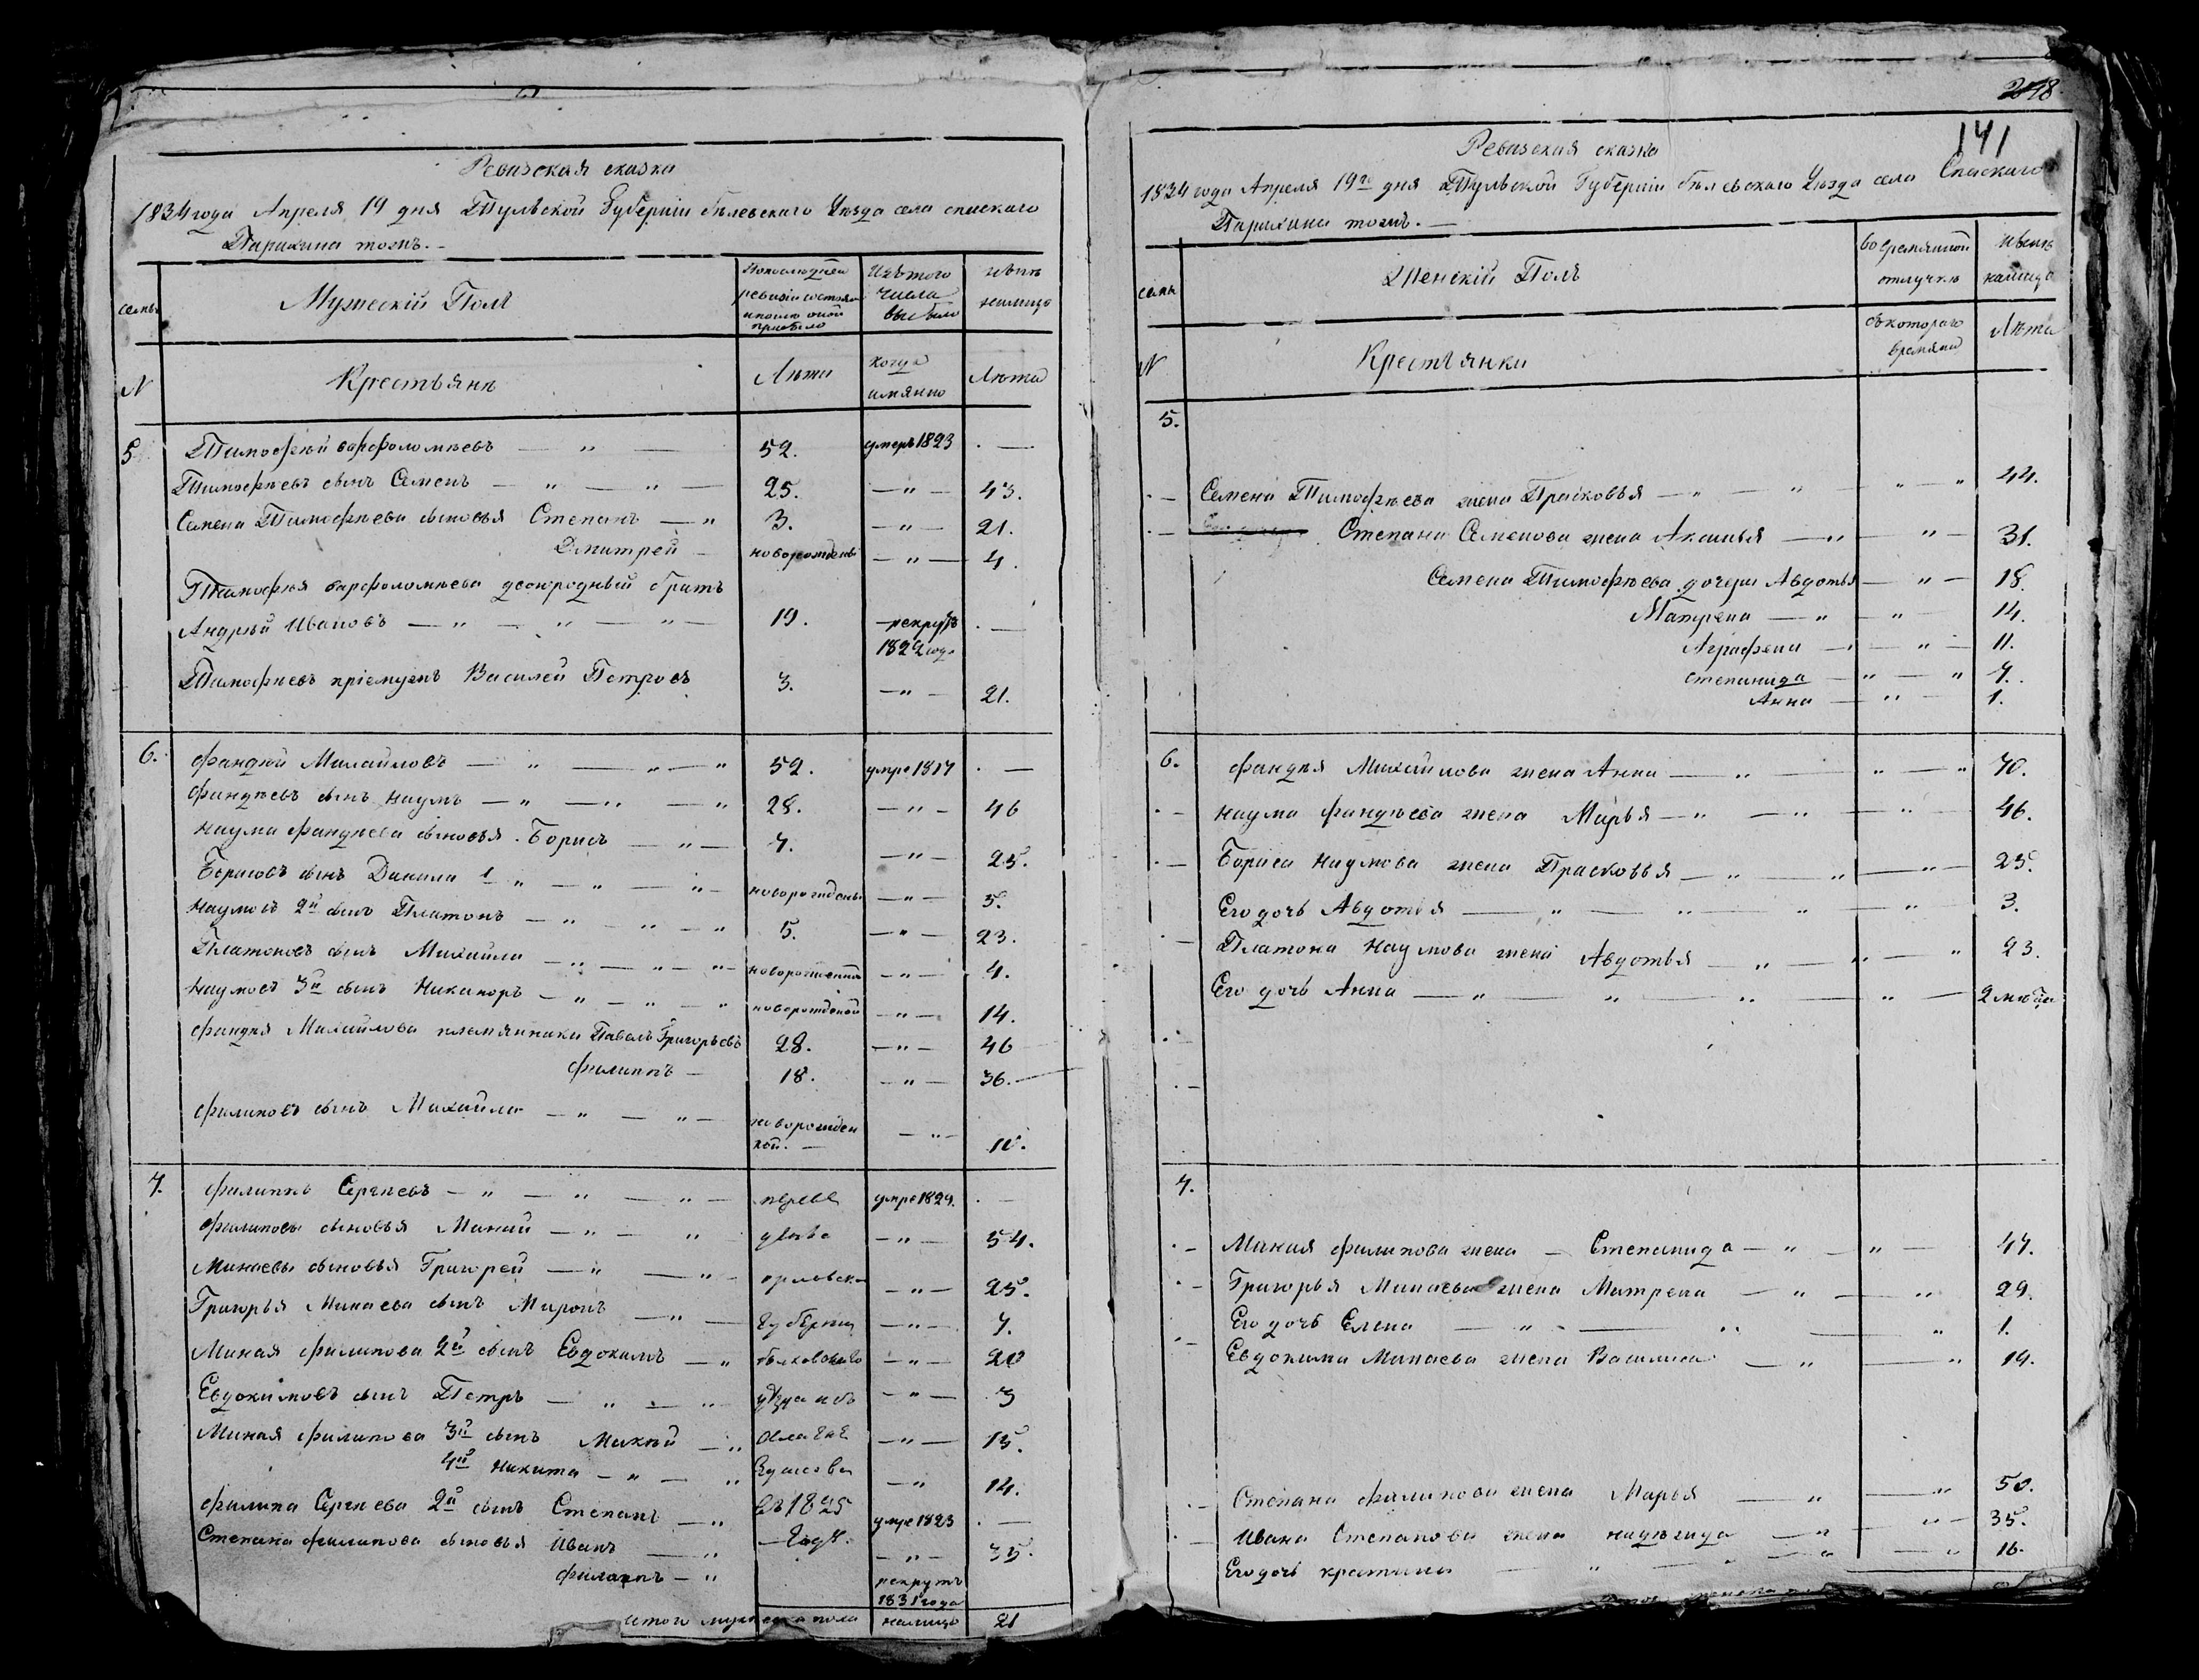 Ревизская сказка
1834 года Апреля 19 дня Тульской Губерніи бѣлевскаго Уѣзда села спаскаго
Парахина тожъ.
семьи
Мужескій Полъ
Попоследней
ревизіи состояло
ипосле оной
прибыло
Изътого
числа
выбыло
нынѣ
налицо
N
Крестьянѣ
Лѣта
Когда
имянно
Лѣта
5 Тимофѣй варфоломѣевъ — " — 52. умеръ 1823 . —
Тимофѣевъ сынъ Семенъ — " — " — 25. — " — 43.
Семена Тимофѣева сыновья Степанъ — " 3. — " — 21.
Дмитрей — новорожденный — " — 4.
Тимофея варфоломѣева двоюродный братъ
Андрѣй Ивановъ — " — " — " — 19. рекрутъ . —
1822 года
Тимофѣевъ пріемышъ Василей Петровъ 3. — " — 21.
6. Фандѣй Михайловъ — " — " — " 52. умре 1817 . —
Фандѣевъ сынъ Наумъ — " — " — " 28. — " — 46
Наума Фандѣева сыновья. Борисъ — " — 7. — " — 25.
Борисовъ сынъ Данила 1 " — " — " — новорожденный — " — 5.
Наумовъ 2й сынъ Платонъ — " — " — " 5. — " — 23.
Платоновъ сынъ Михайла — " — " — " — новорожденной — " — 4.
Наумовъ 3й сынъ Никаноръ — " — " — " новорожденой — " — 14.
Фандея Михайлова племянники Павелъ Григорьевъ 28. — " — 46
Филиппъ — 18. — " — 36. —
Филиповъ сынъ Михайла — " — " — новорожден
ной. — — " — 10.
7. Филиппъ Сергѣевъ — " — " — " — переве умре 1824. . —
Филиповы сыновья Минай — " — " дыизъ — " — 54.
Минаевы сыновья Григорей — " — " — орловской — " — 25.
Григорья Минаева сынъ Миронъ — " — Губерніи — " — 7.
Миная Филипова 2й сынъ Евдокимъ — " болховскаго — " — 20
Евдокимовъ сынъ Петръ — " — " уѣзда изъ — " — 3
Миная Филипова 3й сынъ Макѣй — " — " — 15.
4й Никита — " — " — " 14.
Филипа Сергѣева 2й сынъ Степанъ — " въ 1825 умре 1823 . —
Степана Филипова сыновья Иванъ — " Году. — " — 35.
Филиппъ — " рекрутъ
1831 года
итого мужеска пола налицо 21
218
141
Ревизская сказка
1834 года Апреля 19го дня Тульской Губерніи бѣлевскаго Уѣзда села Спаскаго
Парахина тожъ. —
семьи
Женскій Полъ
вовремянной
отлучкѣ
нынѣ
налицо
N
Крестьянки
съкотораго
времяни
Лѣта
5.
. — Семена Тимофѣева жена Прасковья — " — " " — " 44.
. — Степана Семенова жена Аксинья — " — " — 31.
Семена Тимофѣева дочери Авдотья — " — 18.
Матрена — " — " — 14.
Аграфена — " — " — 11.
степанида — " — " 7.
Анна — " — 1.
6. Фандѣя Михайлова жена Анна — " — " — " 70.
. — Наума Фандѣева жена Марья — " — " — " — 46.
. — Бориса Наумова жена Прасковья — " — " — " — 25.
Его дочь Авдотья — " — " — " — " — 3.
. — Платона Наумова жена Авдотья — " — " — " 23.
Его дочь Анна — " — " — " — " — 2 мѣсяца
7.
. — Миная Филипова жена — Степанида — " — " — 47.
. — Григорья Минаева жена Матрена — " — " 29.
Его дочь Елена — " — " — " 1.
. — Евдокима Минаева жена Василиса — " — " 19.
. — Степана Филипова жена Марья — " — " 50.
. — Ивана Степанова жена надѣжида — " — " — 35.
Его дочь кратина — " — " — " 16.